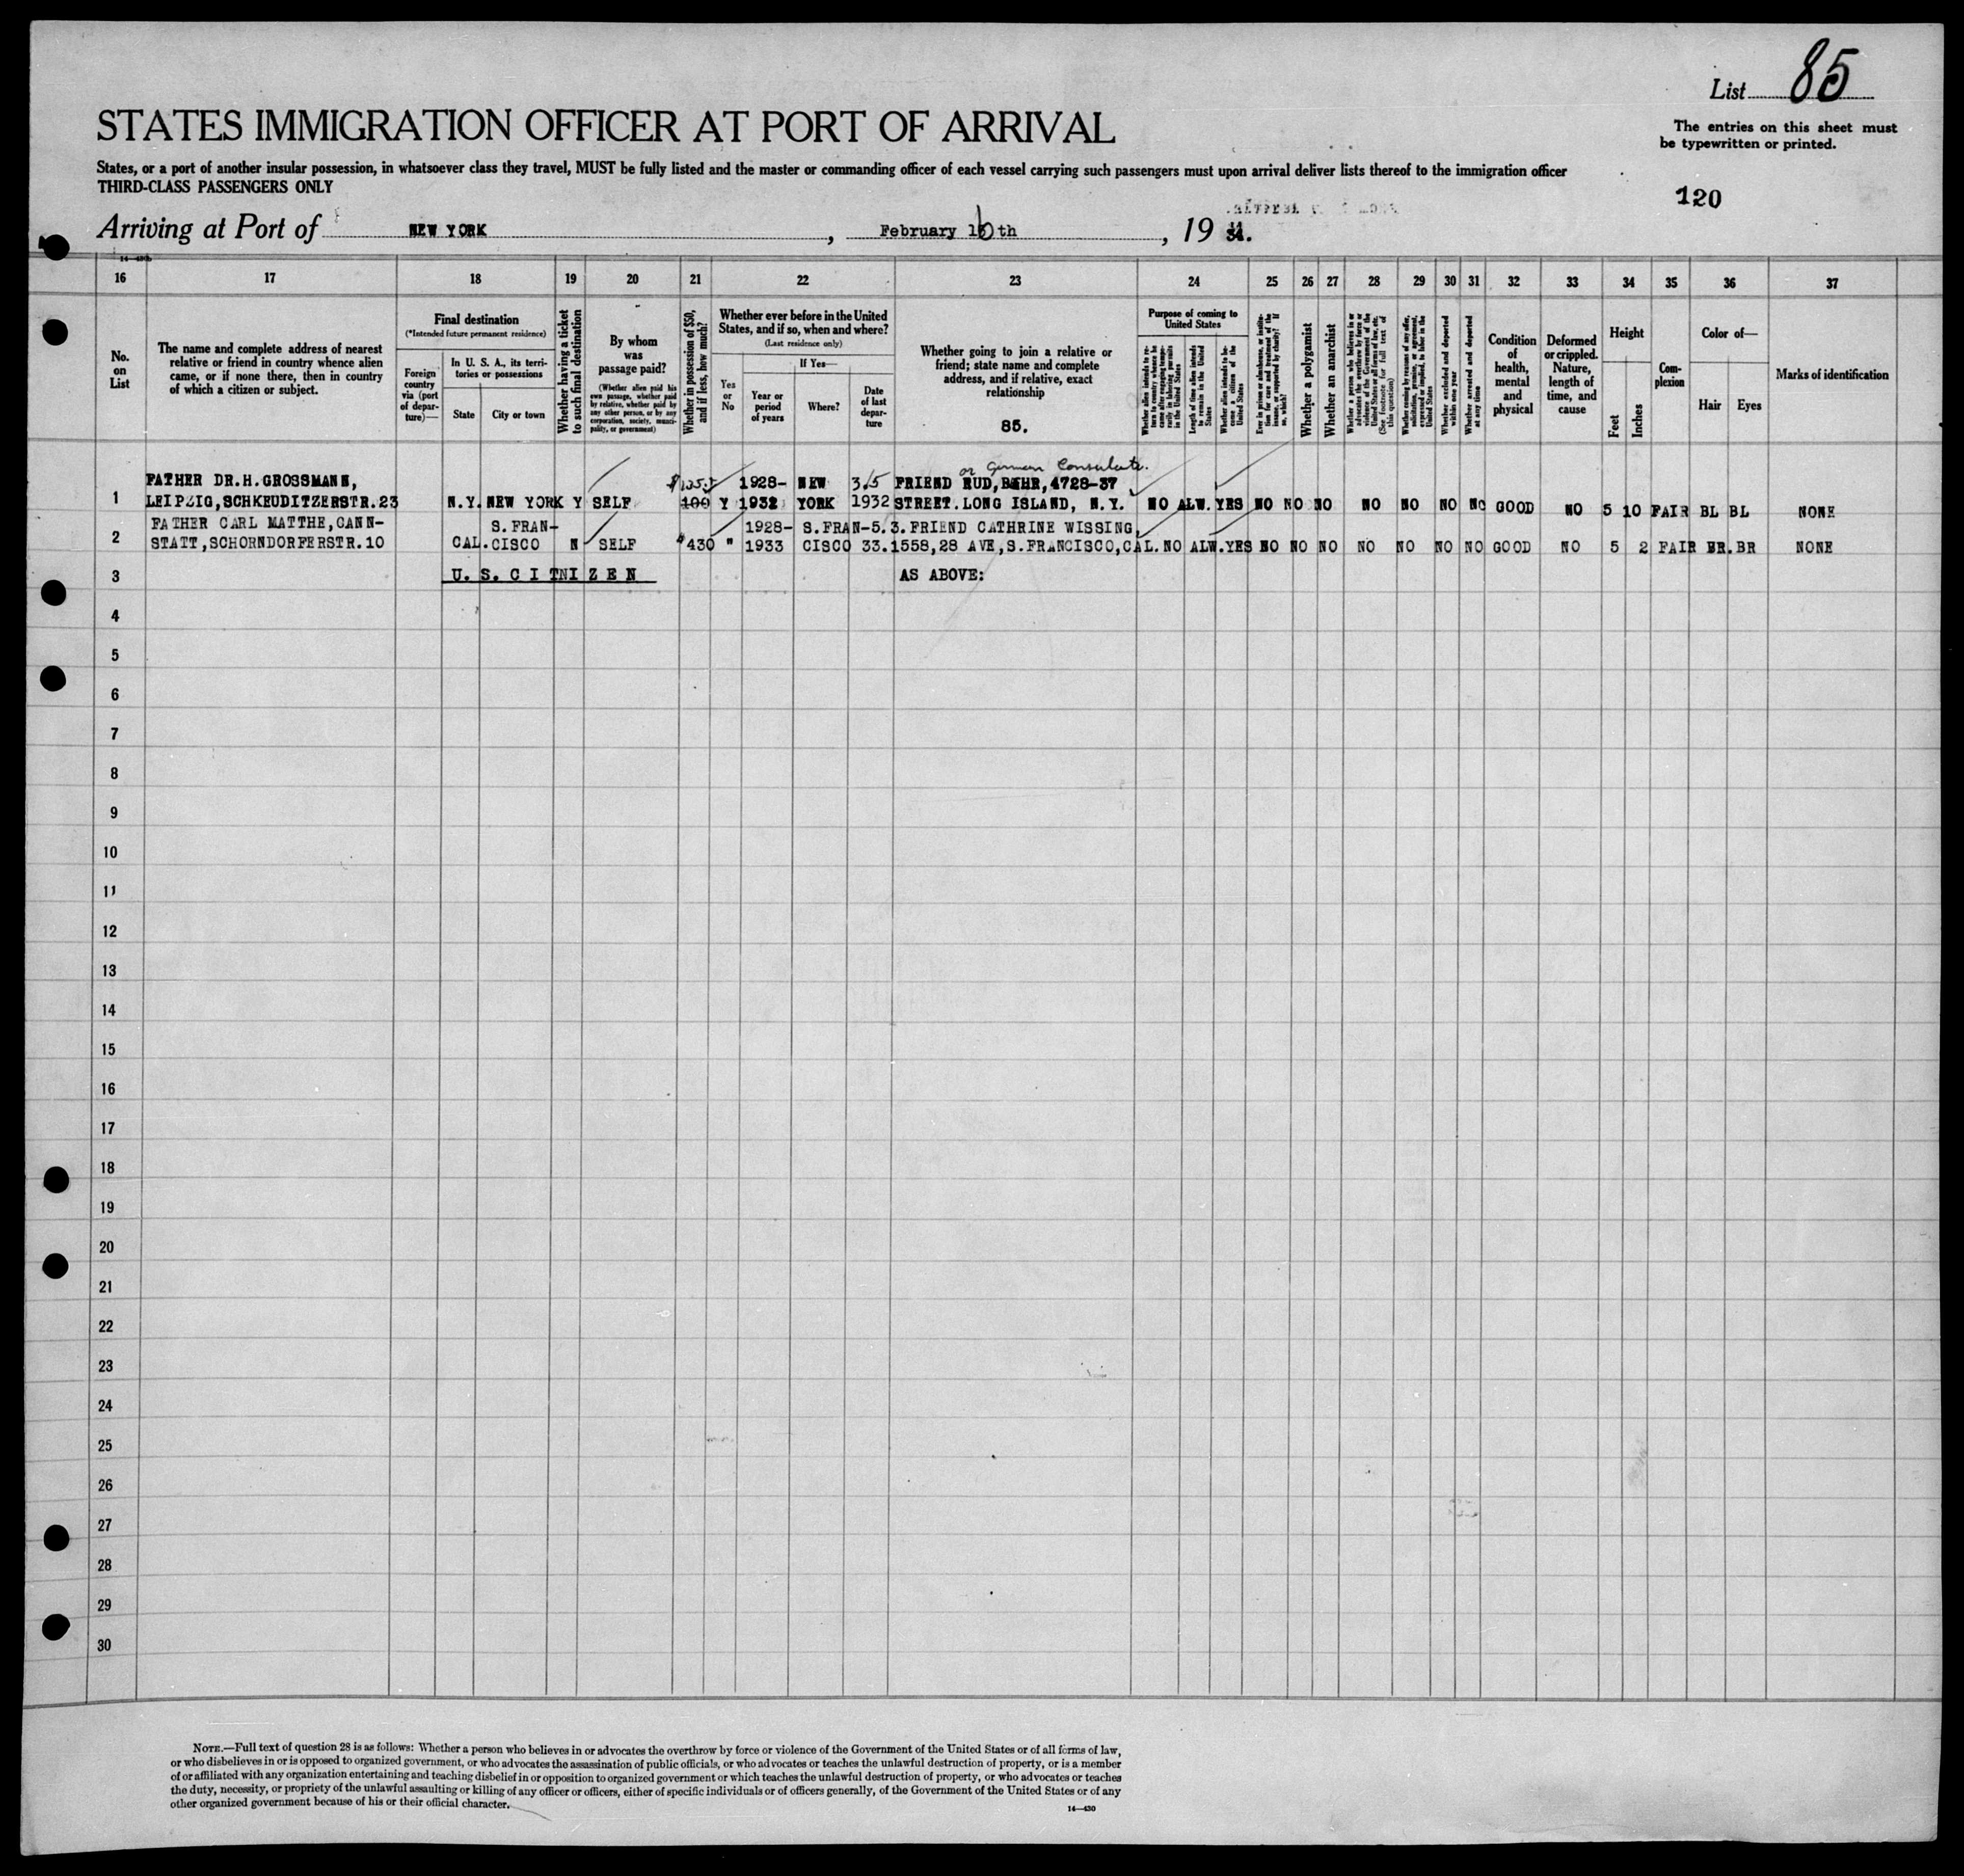 List 85
STATES IMMIGRATION OFFICER AT PORT OF ARRIVAL
The entries on this sheet must
be typewritten or printed.
States, or a port of another insular possession, in whatsoever class they travel, MUST be fully listed and the master or commanding officer of each vessel carrying such passengers must upon arrival deliver lists thereof to the immigration officer
THIRD-CLASS PASSENGERS ONLY
120
Arriving at Port of NEW YORK, February 16th, 19
16 17 18 19 20 21 22 23 24 25 26 27 28 29 30 31 32 33 34 35 36 37
No.
on
List
The name and complete address of nearest
relative or friend in country whence alien
came, or if none there, then in country
of which a citizen or subject.
Final destination
(*Intended future permanent residence)
Foreign
country
via (port
of depar-
ture)—
In U. S. A., its terri-
tories or possessions
State
City or town
Whether having a ticket
to such final destination
By whom
was
passage paid?
(Whether alien paid his
own passage, whether paid
by relative, whether paid by
any other person, or by any
corporation, society, munici-
pality, or government)
Whether in possession of $50,
and if less, how much?
Whether ever before in the United
States, and if so, when and where?
(Last residence only)
Yes
or
No
If Yes—
Year or
period
of years
Where?
Date
of last
depar-
ture
Whether going to join a relative or
friend; state name and complete
address, and if relative, exact
relationship
85.
Purpose of coming to
United States
Whether alien intends to re-
turn to country whence he
came after engaging tempo-
rarily in laboring pursuits
in the United States
Length of time alien intends
to remain in the United
States
Whether alien intends to be-
come a citizen of the
United States
Ever in prison or almshouse, or institu-
tion for care and treatment of the
insane, or supported by charity? If
so, which?
Whether a polygamist
Whether an anarchist
Whether a person who believes in or
advocates the overthrow by force or
violence of the Government of the
United States or all forms of law, etc.
(See footnote for full text of
this question)
Whether coming by reason of any offer,
solicitation, promise, or agreement,
expressed or implied, to labor in the
United States
Whether excluded and deported
within one year
Whether arrested and deported
at any time
Condition
of
health,
mental
and
physical
Deformed
or crippled.
Nature,
length of
time, and
cause
Height
Feet
Inches
Com-
plexion
Color of—
Hair
Eyes
Marks of identification
or German Consulate.
FATHER DR.H.GROSSMANN, 1928- NEW 3.5 FRIEND RUD,BEHR,4728-37
1 LEIPZIG,SCHKEUDITZERSTR.23 N.Y. NEW YORK Y SELF 100 Y 1932 YORK 1932 STREET.LONG ISLAND, N.Y. NO ALW. YES NO NO NO NO NO NO NO GOOD NO 5 10 FAIR BL BL NONE
FATHER CARL MATTHE,CANN- S.FRAN- 1928- S.FRAN- 5.3. FRIEND CATHRINE WISSING,
2 STATT,SCHORNDORFERSTR.10 CAL. CISCO N SELF $430 " 1933 CISCO 33. 1558,28 AVE,S.FRANCISCO,CAL. NO ALW. YES NO NO NO NO NO NO NO GOOD NO 5 2 FAIR BR. BR NONE
3 U.S. CITNIZEN AS ABOVE:
4
5
6
7
8
9
10
11
12
13
14
15
16
17
18
19
20
21
22
23
24
25
26
27
28
29
30
NOTE.—Full text of question 28 is as follows: Whether a person who believes in or advocates the overthrow by force or violence of the Government of the United States or of all forms of law,
or who disbelieves in or is opposed to organized government, or who advocates the assassination of public officials, or who advocates or teaches the unlawful destruction of property, or is a member
of or affiliated with any organization entertaining and teaching disbelief in or opposition to organized government or which teaches the unlawful destruction of property, or who advocates or teaches
the duty, necessity, or propriety of the unlawful assaulting or killing of any officer or officers, either of specific individuals or of officers generally, of the Government of the United States or of any
other organized government because of his or their official character.
14—430